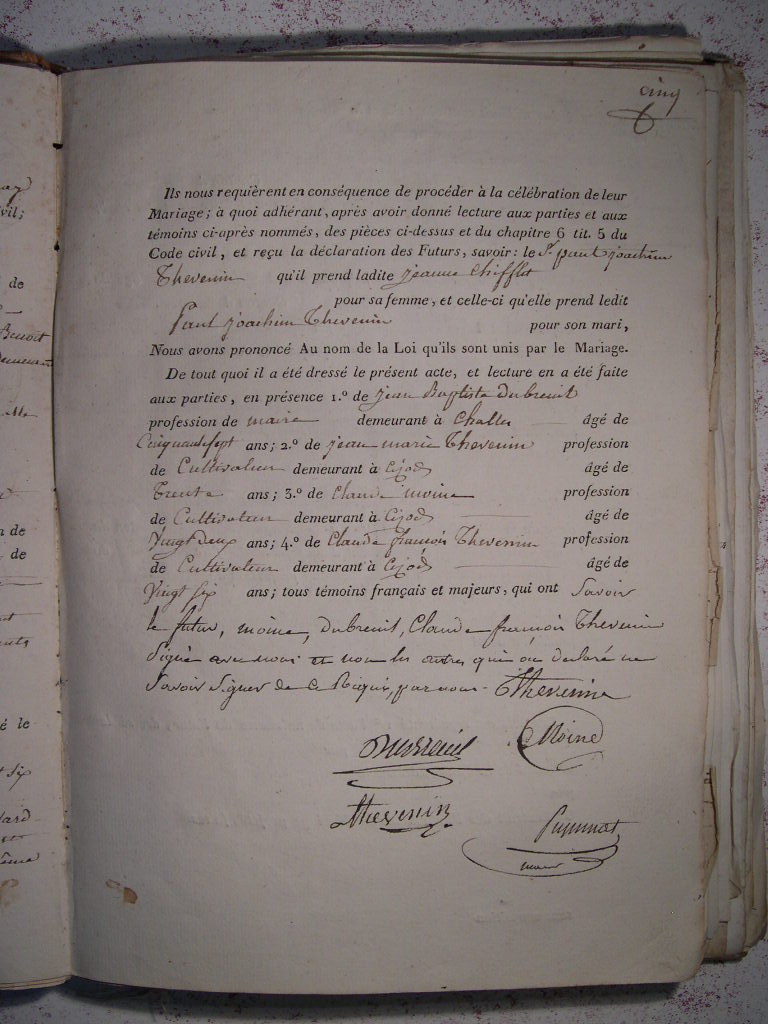 cinq
6
Ils nous requièrent en conséquence de procéder à la célébration de leur
Mariage; à quoi adhérant, après avoir donné lecture aux parties et aux
témoins ci-après nommés, des pièces ci-dessus et du chapitre 6 tit. 5 du
Code civil, et reçu la déclaration des Futurs, savoir: le Sr. paul joachim
Thevenin qu'il prend ladite jeanne chifflet
pour sa femme, et celle-ci qu'elle prend ledit
Paul joachim Thevenin pour son mari,
Nous avons prononcé Au nom de la Loi qu'ils sont unis par le Mariage.
De tout quoi il a été dressé le présent acte, et lecture en a été faite
aux parties, en présence 1.º de jean Baptiste Dubreuil
profession de maire demeurant à Challes âgé de
Cinquante sept ans; 2.º de jean marie Thevenin profession
de Cultivateur demeurant à Cijod âgé de
Trente ans; 3.º de Claude moine profession
de Cultivateur demeurant à Cijod âgé de
Vingt deux ans; 4.º de Claude françois Thevenin profession
de Cultivateur demeurant à Cijod âgé de
Vingt six ans; tous témoins français et majeurs, qui ont Savoir
le futur, moine, Dubreuil, Claude françois Thevenin
Signé avec nous et non les autres qui ont déclaré ne
Savoir Signer de ce Requis, par nous. Thevenin
Dubreuil Moine
Thevenin